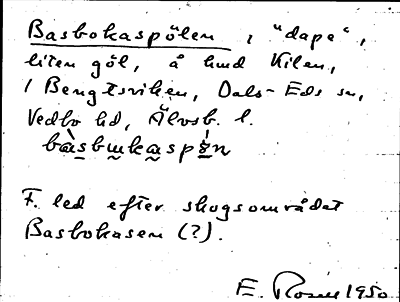 Basbokaspölen, "dape",
liten göl, å hmd Kilen,
/ Bengtsviken, Dals-Eds sn,
Vedbo hd, Älvsb. l.
F. led efter skogsområdet
Basbokasen (?).
E. Rosell 1950